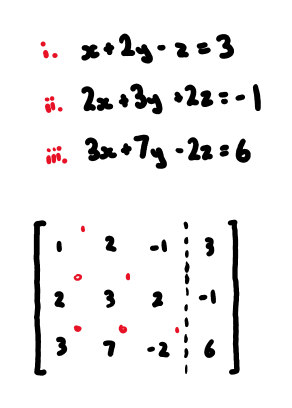 i. x+2y-z=3
ii. 2x+3y+2z=-1
iii. 3x+7y-2z=6
1 2 -1 3
2 3 2 -1
3 7 -2 6